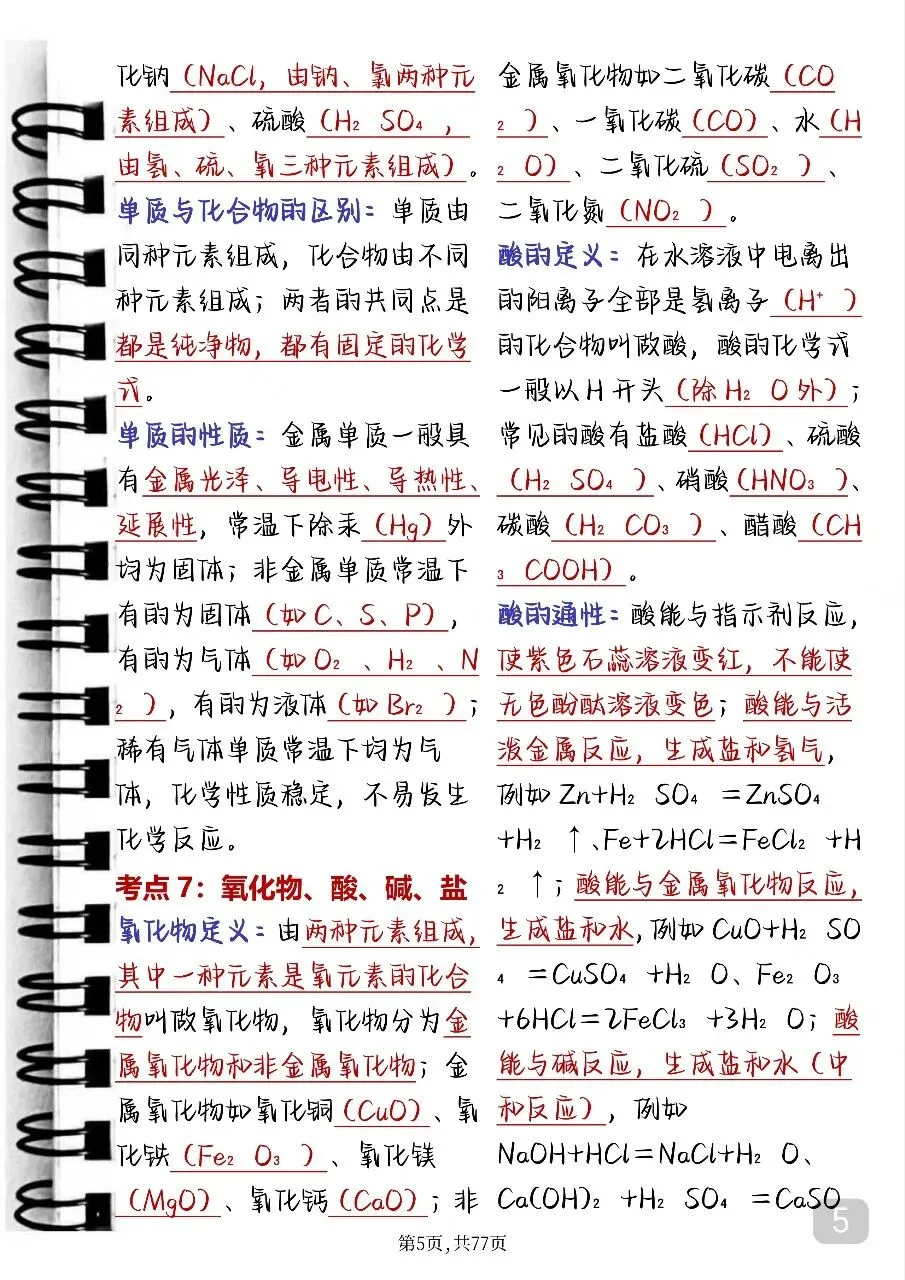 化钠（NaCl，由钠、氯两种元
素组成）、硫酸（H₂ SO₄ ，
由氢、硫、氧三种元素组成）。
单质与化合物的区别：单质由
同种元素组成，化合物由不同
种元素组成；两者的共同点是
都是纯净物，都有固定的化学
式。
单质的性质：金属单质一般具
有金属光泽、导电性、导热性、
延展性，常温下除汞（Hg）外
均为固体；非金属单质常温下
有的为固体（如C、S、P），
有的为气体（如O₂ 、H₂ 、N
₂ ），有的为液体（如Br₂ ）；
稀有气体单质常温下均为气
体，化学性质稳定，不易发生
化学反应。
考点 7：氧化物、酸、碱、盐
氧化物定义：由两种元素组成，
其中一种元素是氧元素的化合
物叫做氧化物，氧化物分为金
属氧化物和非金属氧化物；金
属氧化物如氧化铜（CuO）、氧
化铁（Fe₂ O₃ ）、氧化镁
（MgO）、氧化钙（CaO）；非
金属氧化物如二氧化碳（CO
₂ ）、一氧化碳（CO）、水（H
₂ O）、二氧化硫（SO₂ ）、
二氧化氮（NO₂ ）。
酸的定义：在水溶液中电离出
的阳离子全部是氢离子（H⁺ ）
的化合物叫做酸，酸的化学式
一般以H开头（除H₂ O外）；
常见的酸有盐酸（HCl）、硫酸
（H₂ SO₄ ）、硝酸（HNO₃ ）、
碳酸（H₂ CO₃ ）、醋酸（CH
₃ COOH）。
酸的通性：酸能与指示剂反应，
使紫色石蕊溶液变红，不能使
无色酚酞溶液变色；酸能与活
泼金属反应，生成盐和氢气，
例如Zn+H₂ SO₄ =ZnSO₄
+H₂ ↑、Fe+2HCl=FeCl₂ +H
₂ ↑；酸能与金属氧化物反应，
生成盐和水，例如CuO+H₂ SO
₄ =CuSO₄ +H₂ O、Fe₂ O₃
+6HCl=2FeCl₃ +3H₂ O；酸
能与碱反应，生成盐和水（中
和反应），例如
NaOH+HCl=NaCl+H₂ O、
Ca(OH)₂ +H₂ SO₄ =CaSO
5
第5页,共77页